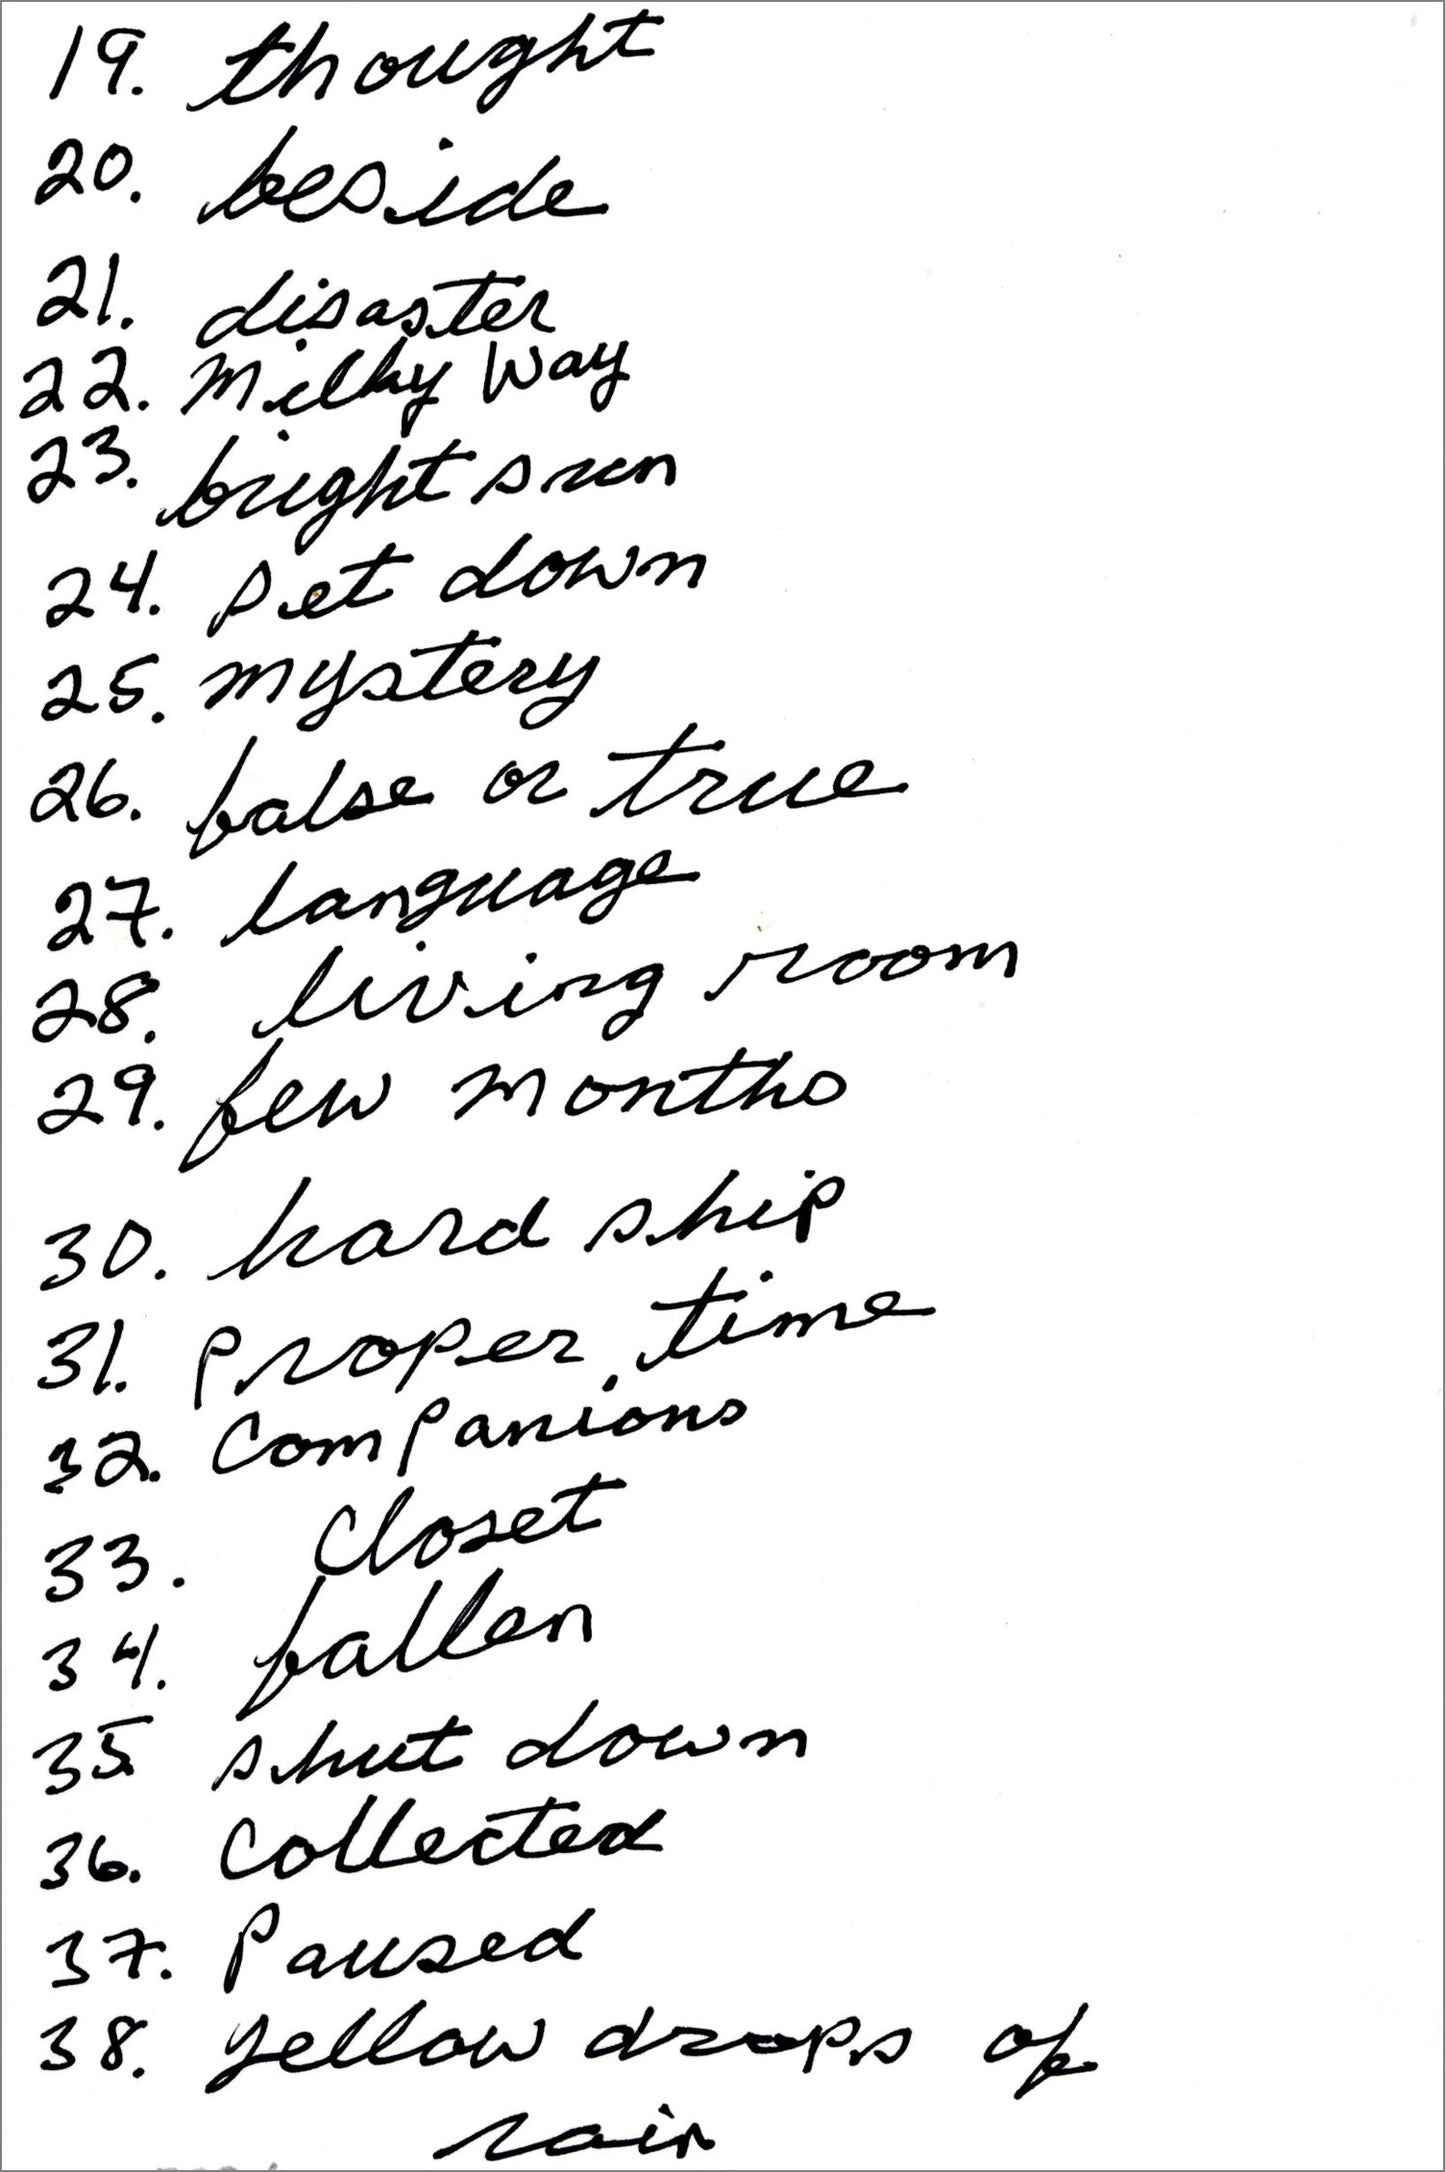 19. thought
20. beside
21. disaster
22. Milky Way
23. bright sun
24. set down
25. mystery
26. false or true
27. language
28. living room
29. few months
30. hard ship
31. proper time
32. Companions
33. Closet
34. fallen
35 shut down
36. Collected
37. Paused
38. yellow drops of
rain